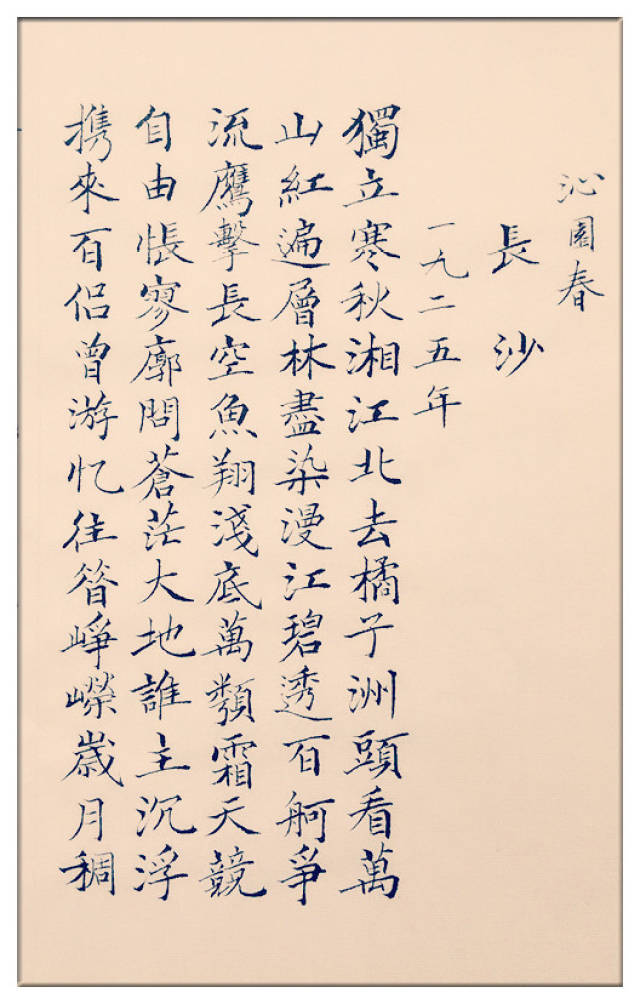 沁園春
長沙
一九二五年
獨立寒秋湘江北去橘子洲頭看萬
山紅遍層林盡染漫江碧透百舸爭
流鷹擊長空魚翔淺底萬類霜天競
自由悵寥廓問蒼茫大地誰主沉浮
携來百侶曾游忆往昔崢嶸歲月稠